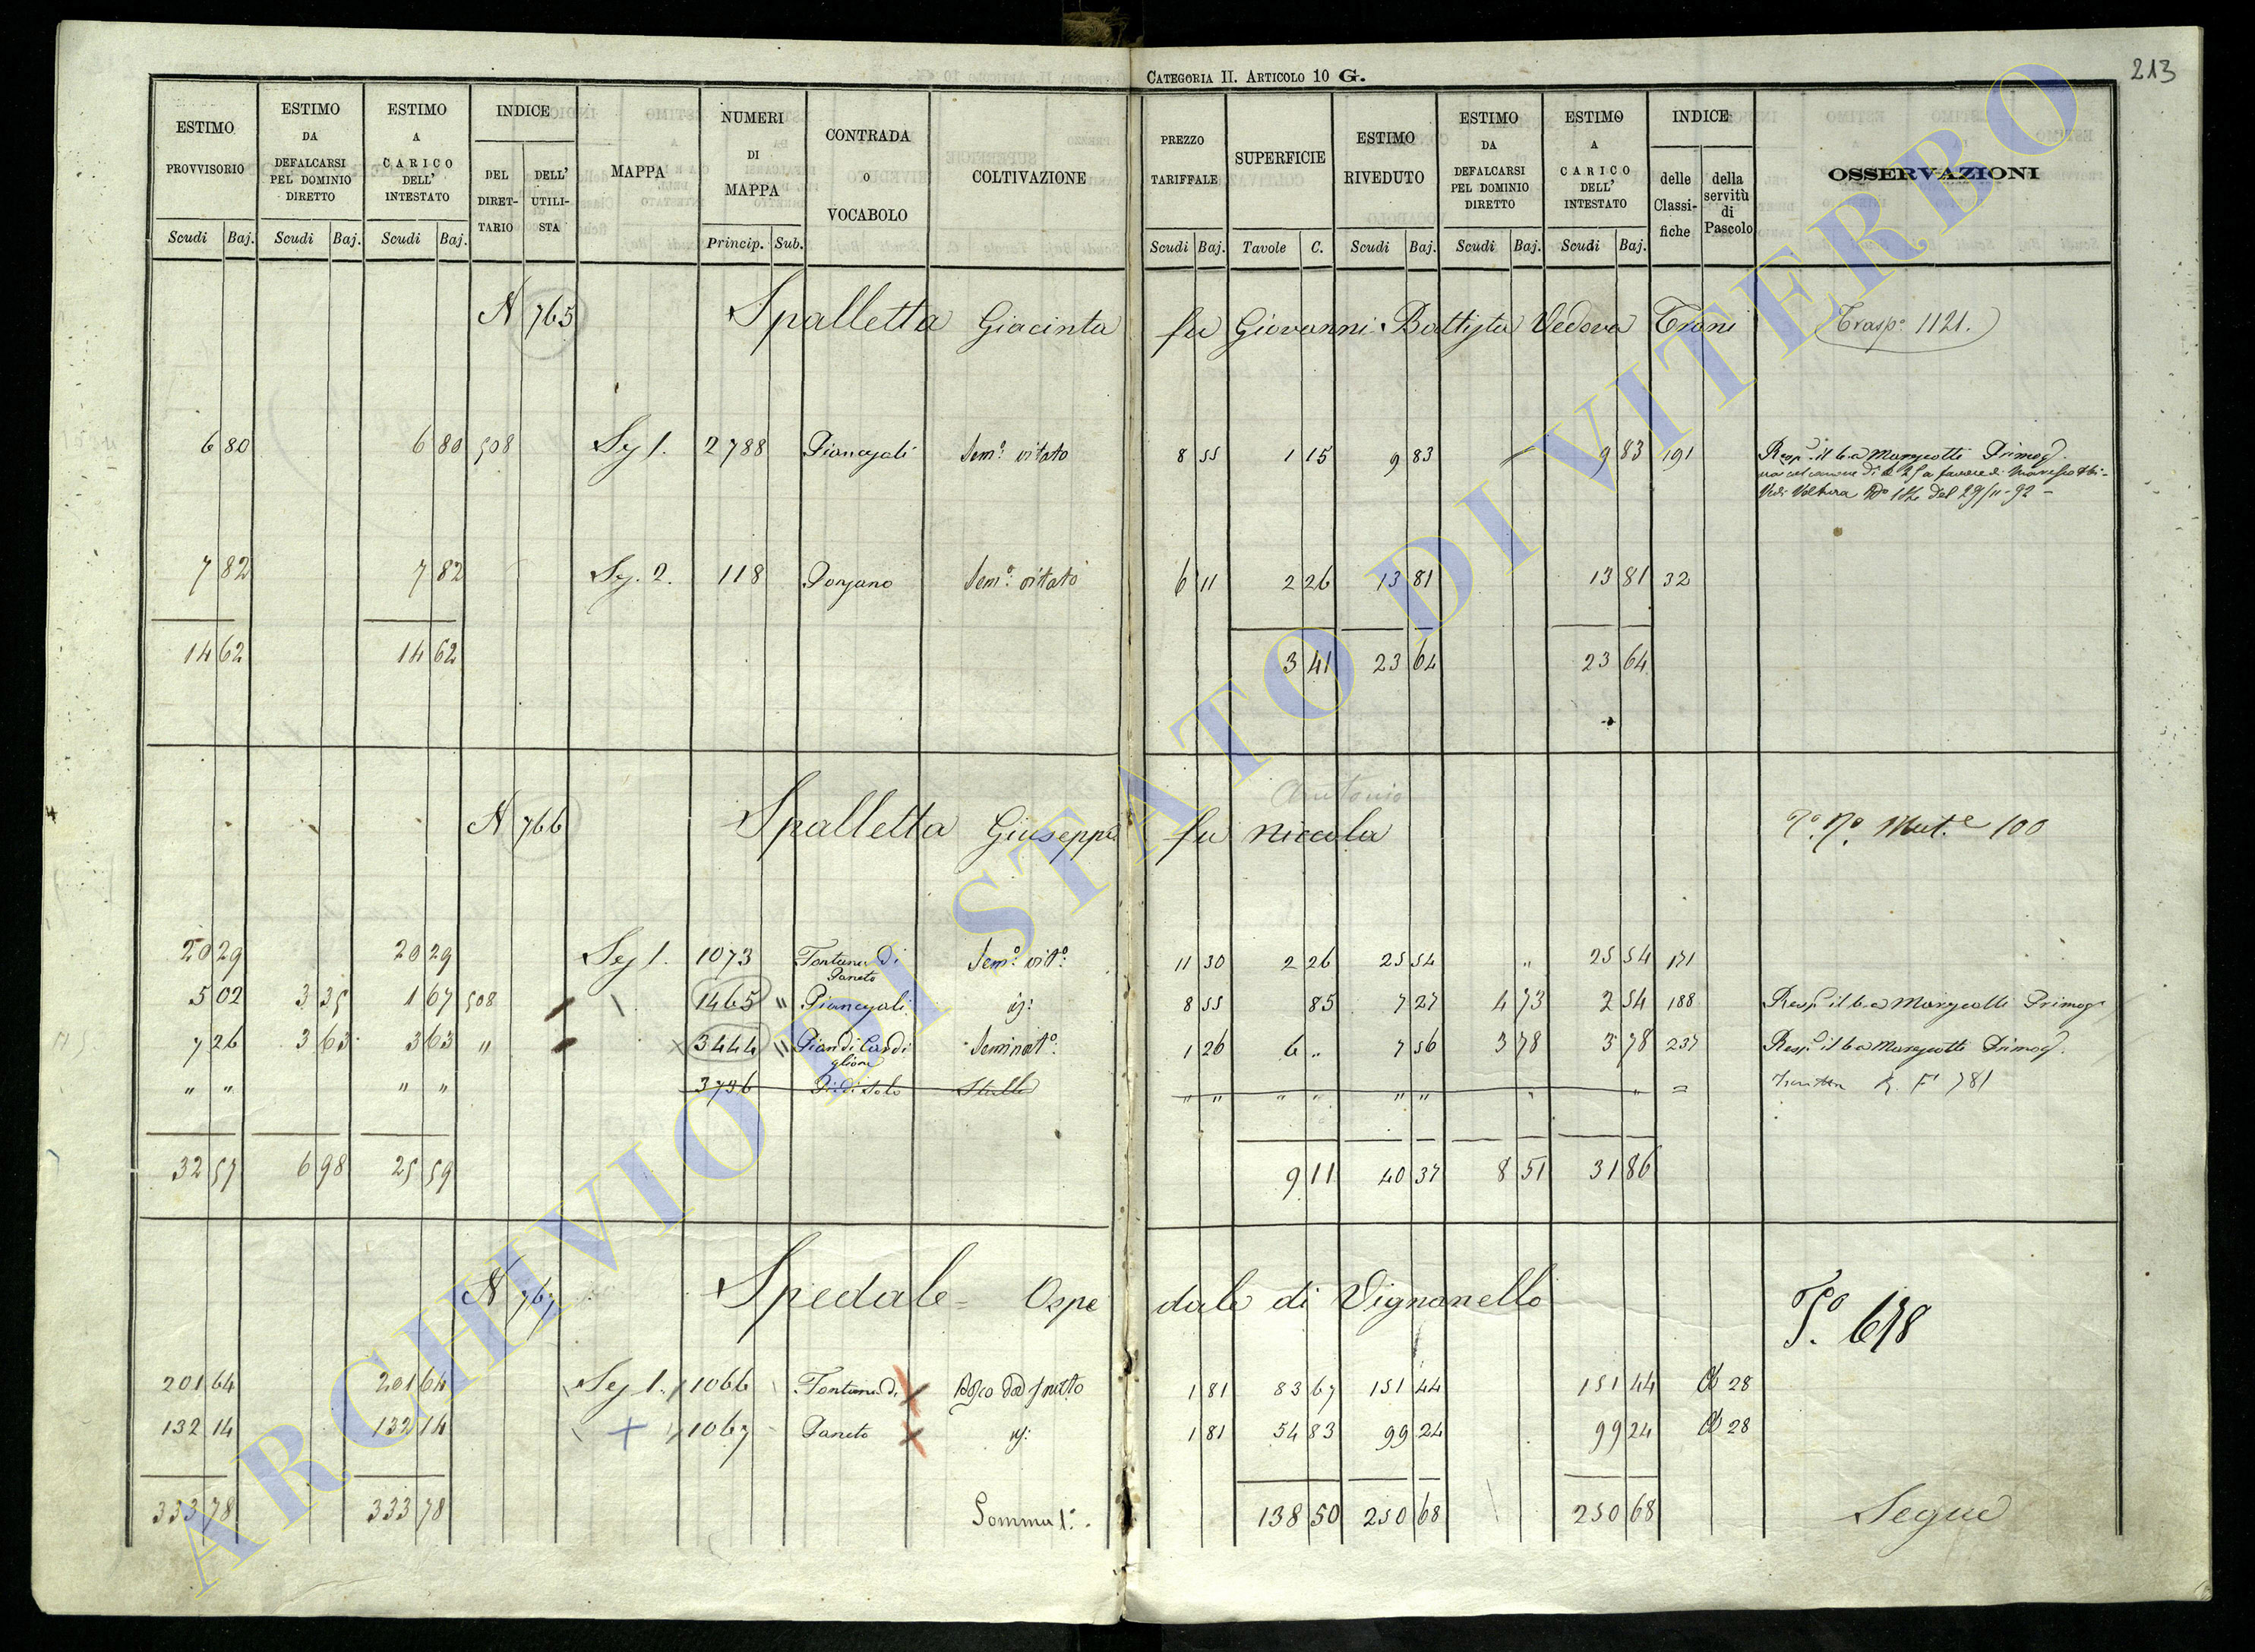 CATEGORIA II. ARTICOLO 10 G.
213
ESTIMO PROVVISORIO
ESTIMO DA DEFALCARSI PEL DOMINIO DIRETTO
ESTIMO A CARICO DELL' INTESTATO
INDICE
DEL DIRETTARIO
DELL' UTILISTA
MAPPA
NUMERI DI MAPPA
CONTRADA O VOCABOLO
COLTIVAZIONE
PREZZO TARIFFALE
SUPERFICIE
ESTIMO RIVEDUTO
ESTIMO DA DEFALCARSI PEL DOMINIO DIRETTO
ESTIMO A CARICO DELL' INTESTATO
INDICE
delle Classifiche
della servitù di Pascolo
OSSERVAZIONI
Scudi Baj. Scudi Baj. Scudi Baj. Princip. Sub. Scudi Baj. Tavole C. Scudi Baj. Scudi Baj. Scudi Baj.
N 765 Spalletta Giacinta fu Giovanni Battista Vedova Troni Trasp.o 1121.
6 80 6 80 508 Sez 1. 2788 Piancajali Sem.o vitato 8 55 1 15 9 83 9 83 191 Resp. il 6.a Primog.
Vedi Voltura del 29/11-92 -
7 82 7 82 Sez. 2. 118 Sem.o vitato 6 11 2 26 13 81 13 81 32
14 62 14 62 3 41 23 64 23 64
Antonio
N 766 Spalletta Giuseppe fu Niccola Mut.e 100
20 29 20 29 Sez 1. 1073 Fontana di Paneto Sem.o vit.o 11 30 2 26 25 54 " 25 54 171
5 02 3 35 1 67 508 1465 " Piancajali 8 55 85 7 27 4 73 2 54 188 Resp. il 6.a Primog
7 26 3 63 3 63 " 3444 " Pian di Cardiglione Seminat.o 1 26 6 " 7 56 3 78 3 78 237 Resp. il 6.a Primog.
" " " " 3736 Stalla " " " " " " " " = R. F. 781
32 57 6 98 25 59 9 11 40 37 8 51 31 86
N 767 Spedale = Ospedale di Vignanello
T.o 678
201 64 201 64 Sez 1. 1066 Fontana di Bosco da frutto 1 81 83 67 151 44 151 44 28
132 14 132 14 1067 Paneto 1 81 54 83 99 24 99 24 28
333 78 333 78 Somma 1.a 138 50 250 68 250 68 Segue
ARCHIVIO DI STATO DI VITERBO